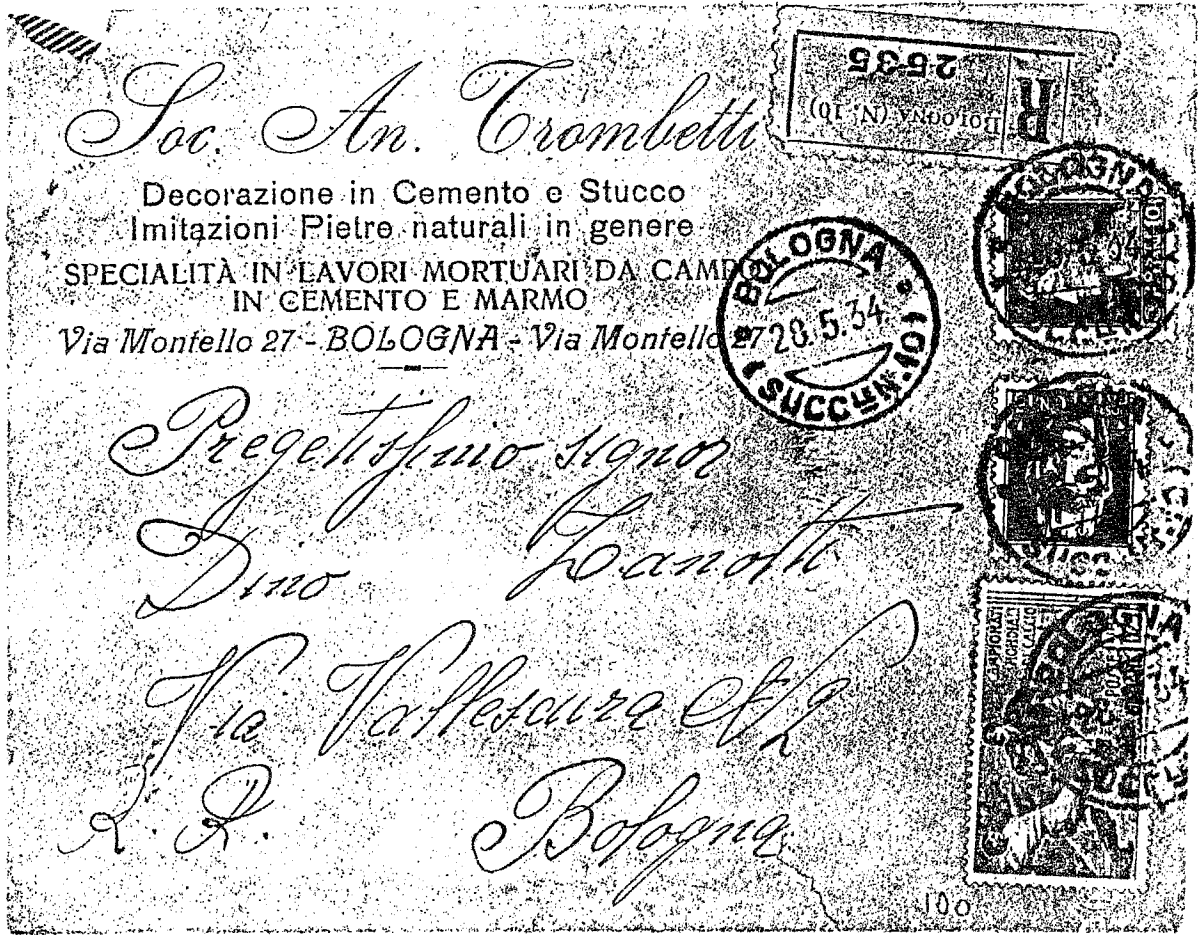 Soc. An. Trombetti
Decorazione in Cemento e Stucco
Imitazioni Pietre naturali in genere
SPECIALITÀ IN LAVORI MORTUARI DA CAMPO
IN CEMENTO E MARMO
Via Montello 27 - BOLOGNA - Via Montello 27
R
BOLOGNA (N. 10)
2535
BOLOGNA
28.5.34
SUCC. N. 10
Pregetissimo signor
Dino Zanotti
Via Vallescura
Bologna
CAMPIONATI
MONDIALI
CALCIO
POSTE
100